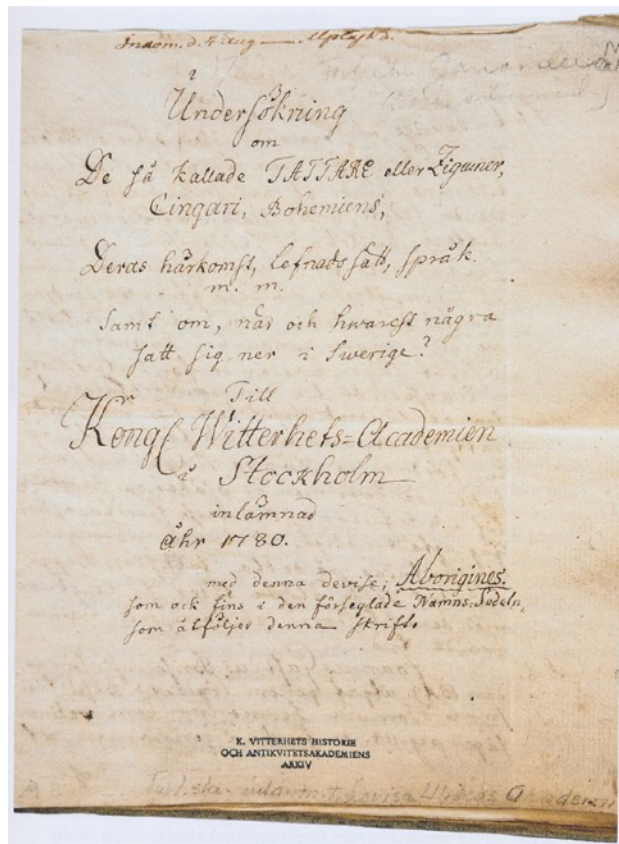 Inkom. d. 4 aug
i
Undersökning
om
De så kallade TATTARE eller Zigeuner,
Cingari, Bohemiens,
Deras härkomst, lefnadssätt, språk.
m. m.
Samt om, när och hwarest några
satt sig ner i Swerige?
Till
Kongl Witterhets=Academien
i Stockholm
inlämnad
åhr 1780.
med denna devise; Aborigines.
som ock fins i den förseglade Namns-Sedeln,
som åtföljer denna skrift.
K. VITTERHETS HISTORIE
OCH ANTIKVITETSAKADEMIENS
ARKIV